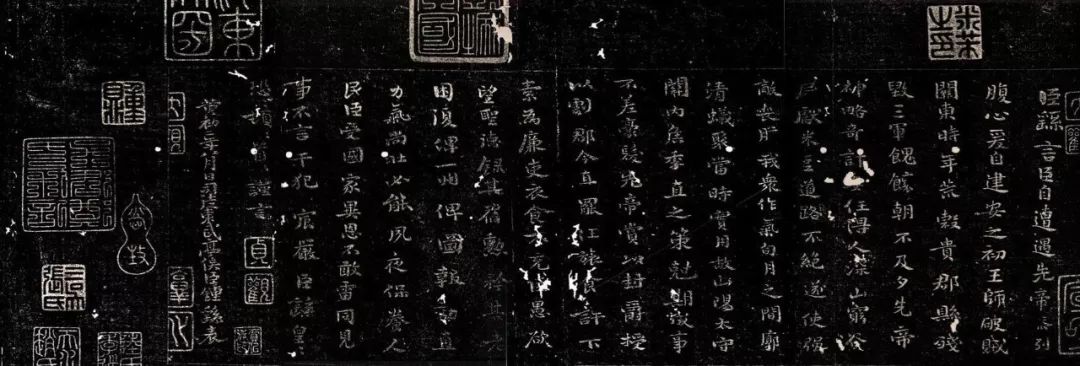 臣繇言臣自遭遇先帝忝列
腹心爰自建安之初王師破賊
關東時年荒穀貴郡縣殘
毀三軍餽饟朝不及夕先帝
神略奇計委任得人深山窮谷
民獻米豆道路不絕遂使強
敵喪膽我衆作氣旬月之間廓
清蟻聚當時實用故山陽太守
關內侯季直之策剋期成事
不差豪髮先帝賞以封爵授
以劇郡今直罷任旅食許下
素為廉吏衣食不充愚欲
望聖德錄其舊勳矜其老
困復俾一州俾圖報效直
力氣尚壯必能夙夜保養人
民臣受國家異恩不敢雷同見
事不言干犯宸嚴臣繇皇
恐頓首謹言
黃初二年八月日司徒東武亭侯臣鍾繇表
貞觀